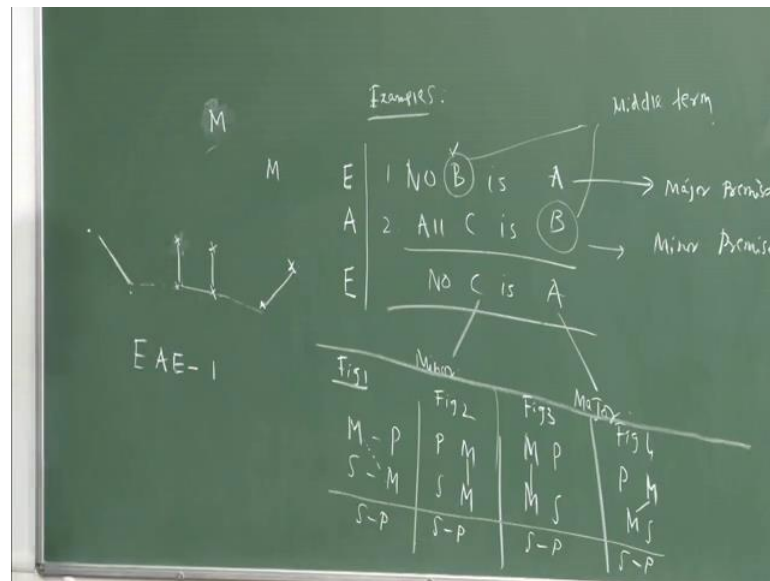 Examples:
Middle term
M
M
E 1 NO B is A → Major Premise
A 2 All C is B → Minor Premise
E No C is A
EAE-1
Minor
Major
Fig1 Fig2 Fig3 Fig4
M-P P M M P P M
S-M S M M S M S
S-P S-P S-P S-P